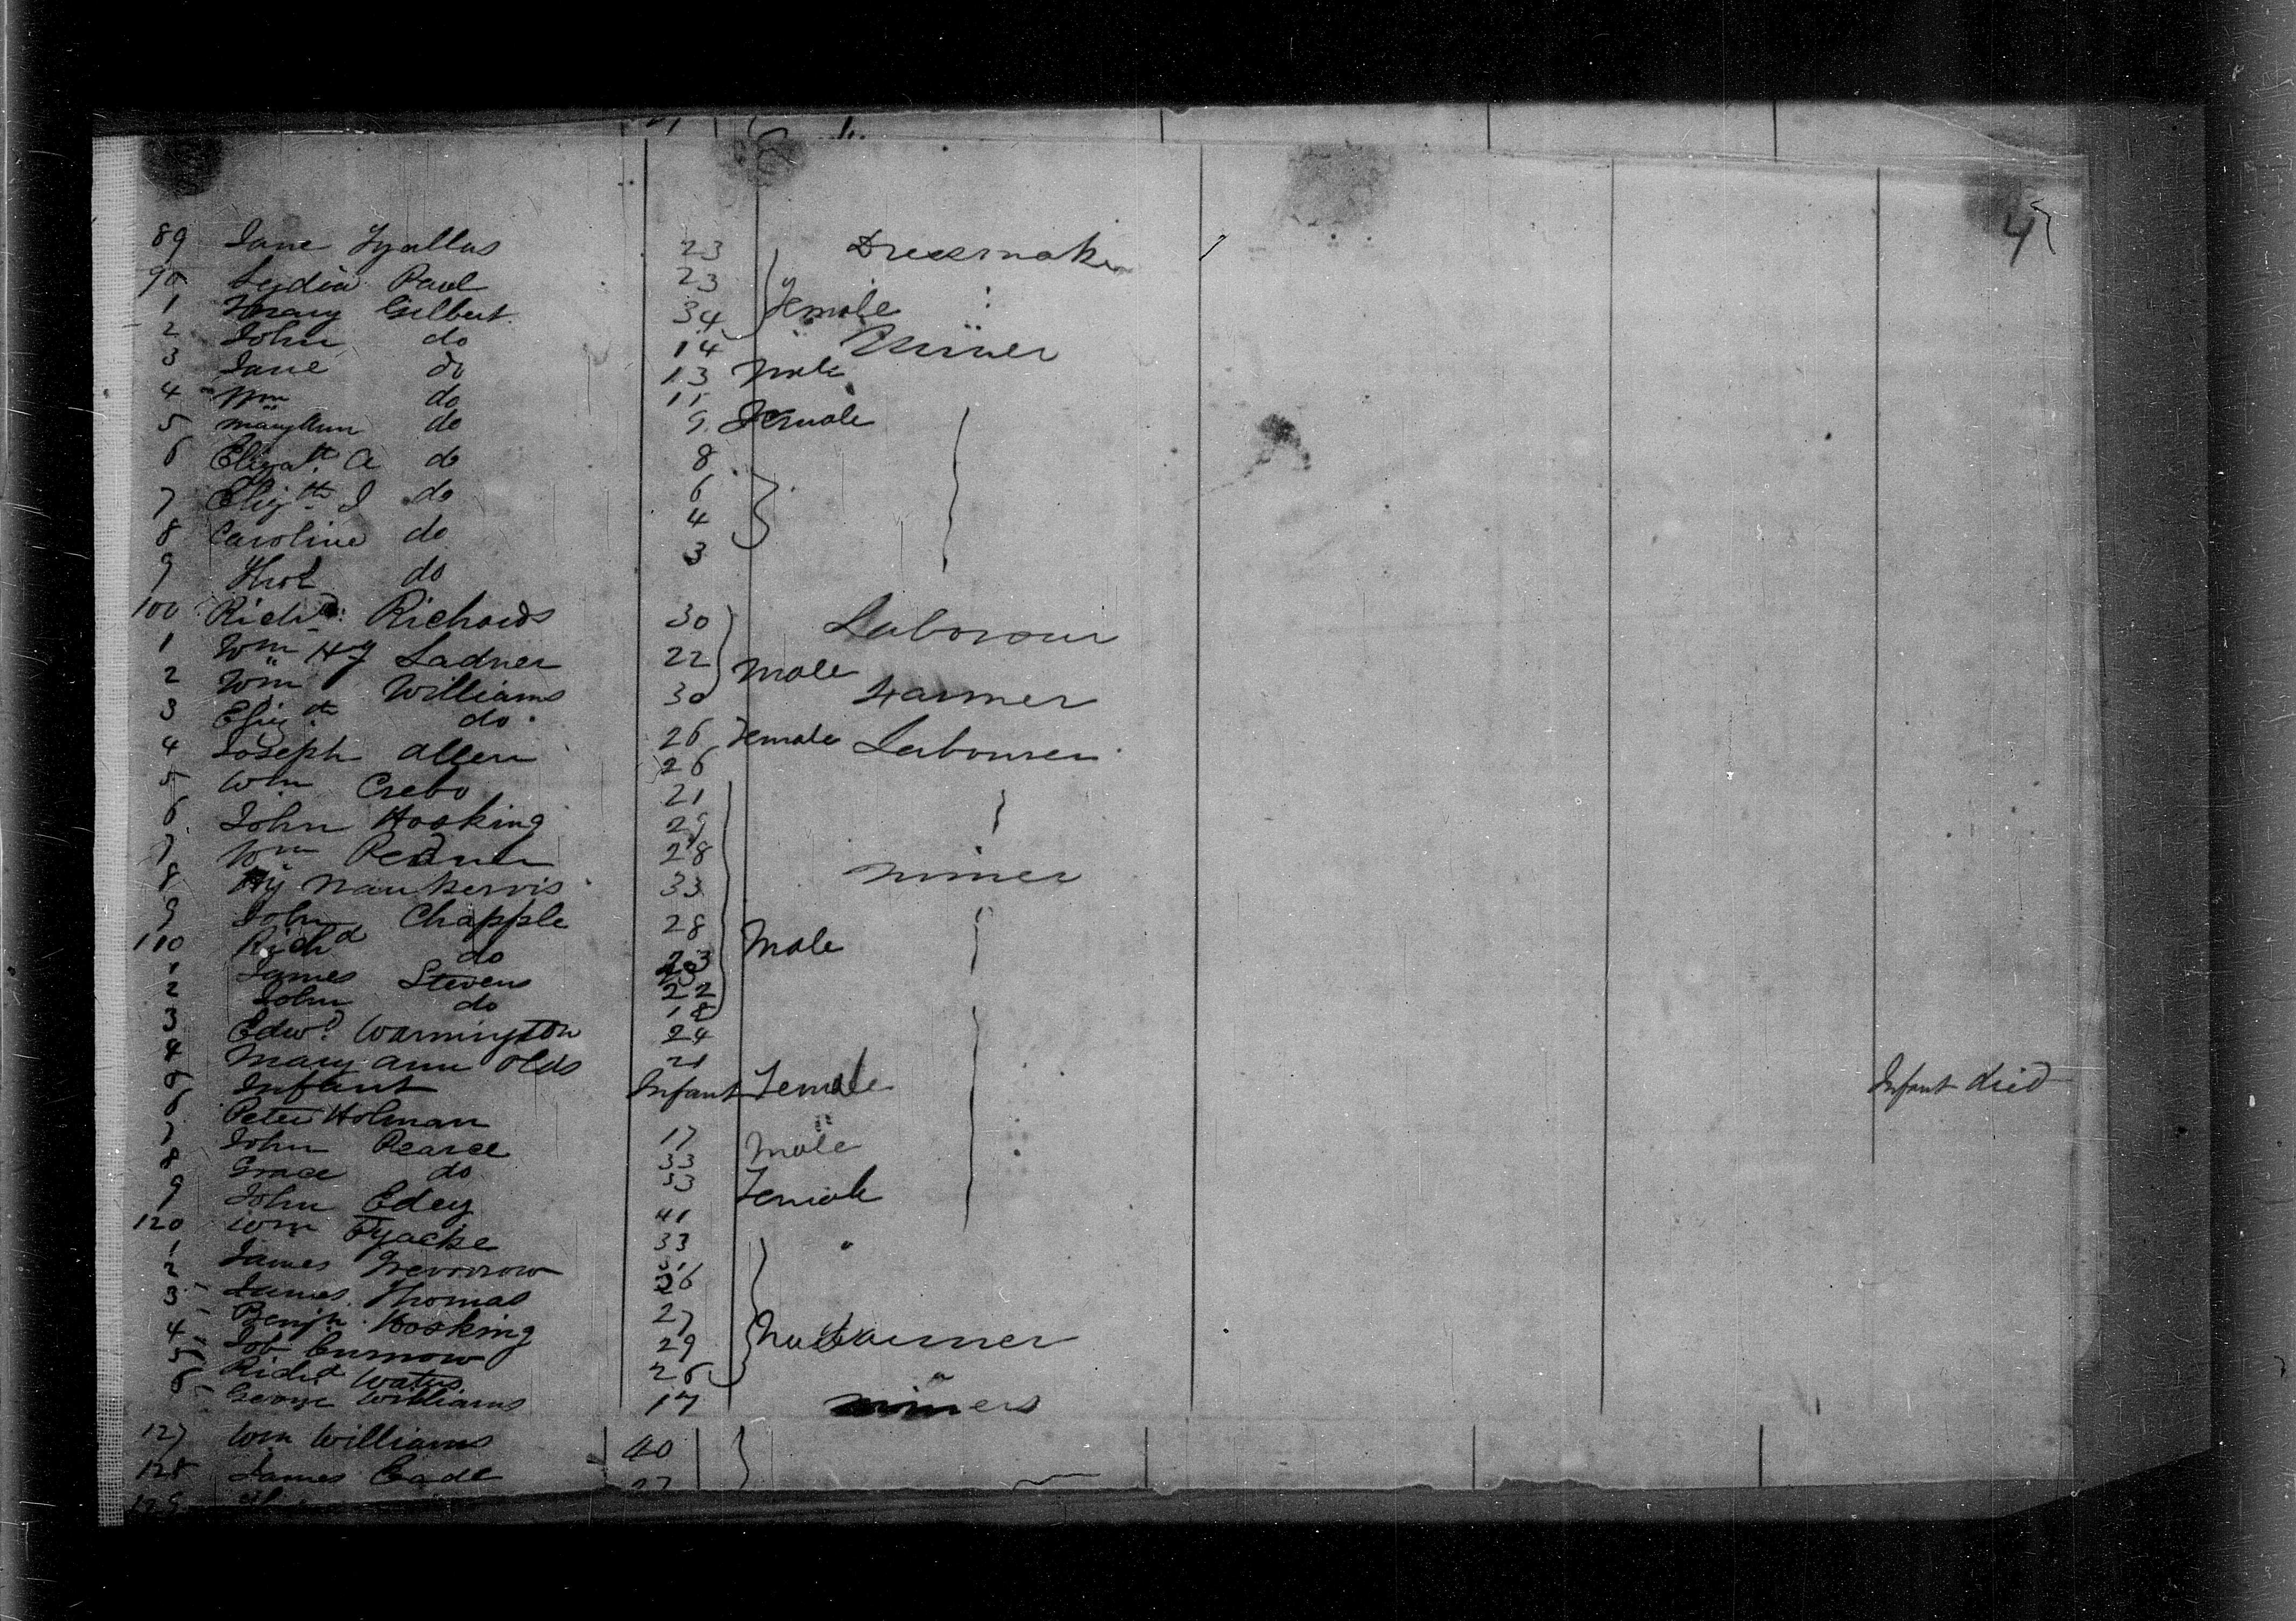 4
89 Jane 23 Dressmaker
90 Lydia Paul 23
1 Mary Gilbert 34 Female
2 John do 14 Miner
3 Jane do 13 Male
4 Wm do 11
5 Mary Ann do 9 Female
6 Elizath A do 8
7 Elizth J do 6
8 Caroline do 4
9 Thos do 3
100 Richd Richards 30 Labourer
1 Wm Hy Ladner 22 Male
2 Wm Williams 30 Farmer
3 Elizth do 26 Female
4 Joseph Allen 26 Labourer
5 Wm Crebo 21
6 John Hosking 29
7 Wm 28
8 Hy Nankervis 33 Miner
9 John Chapple 28
110 Richd do 23 Male
1 James Stevens 22
2 John do 18
3 Edwd Warmington 24
4 Mary Ann Olds 21
5 Infant Infant Female Infant died
6 Peter Holman 17 Male
7 John Pearce 33
8 Grace do 33 Female
9 John Edey 41
120 Wm Tyacke 33
1 James Trevorrow
2 James Thomas 26
3 Benjn Hosking 27
4 Job Curnow 29 Farmer
5 Richd Waters 26
6 George Williams 17 miners
127 Wm Williams 40
128 James Eade 27
129